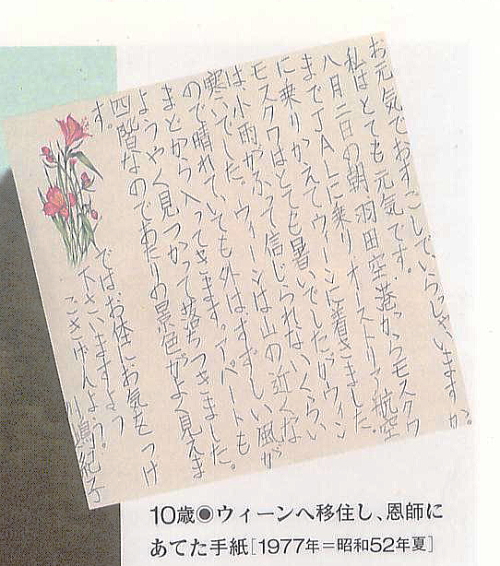 お元気でおすごしでいらっしゃいますか。
私はとても元気です。
八月二日の朝、羽田空港からモスクワ
までJALに乗り、オーストリア航空
に乗りかえてウィーンに着きました。
モスクワはとても暑いでしたがウィン
は小雨がふって信じられないくらい
寒いでした。ウィーンは山の近くな
ので晴れていても外はすずしい風が
まどから入ってきます。アパートも
ようやく見つかって落ちつきました。
四階なのであたりの景色がよく見えま
す。
ではお体にお気をつけ
下さいますよう
ごきげんよう。
川嶋紀子
10歳◉ウィーンへ移住し、恩師に
あてた手紙[1977年=昭和52年夏]